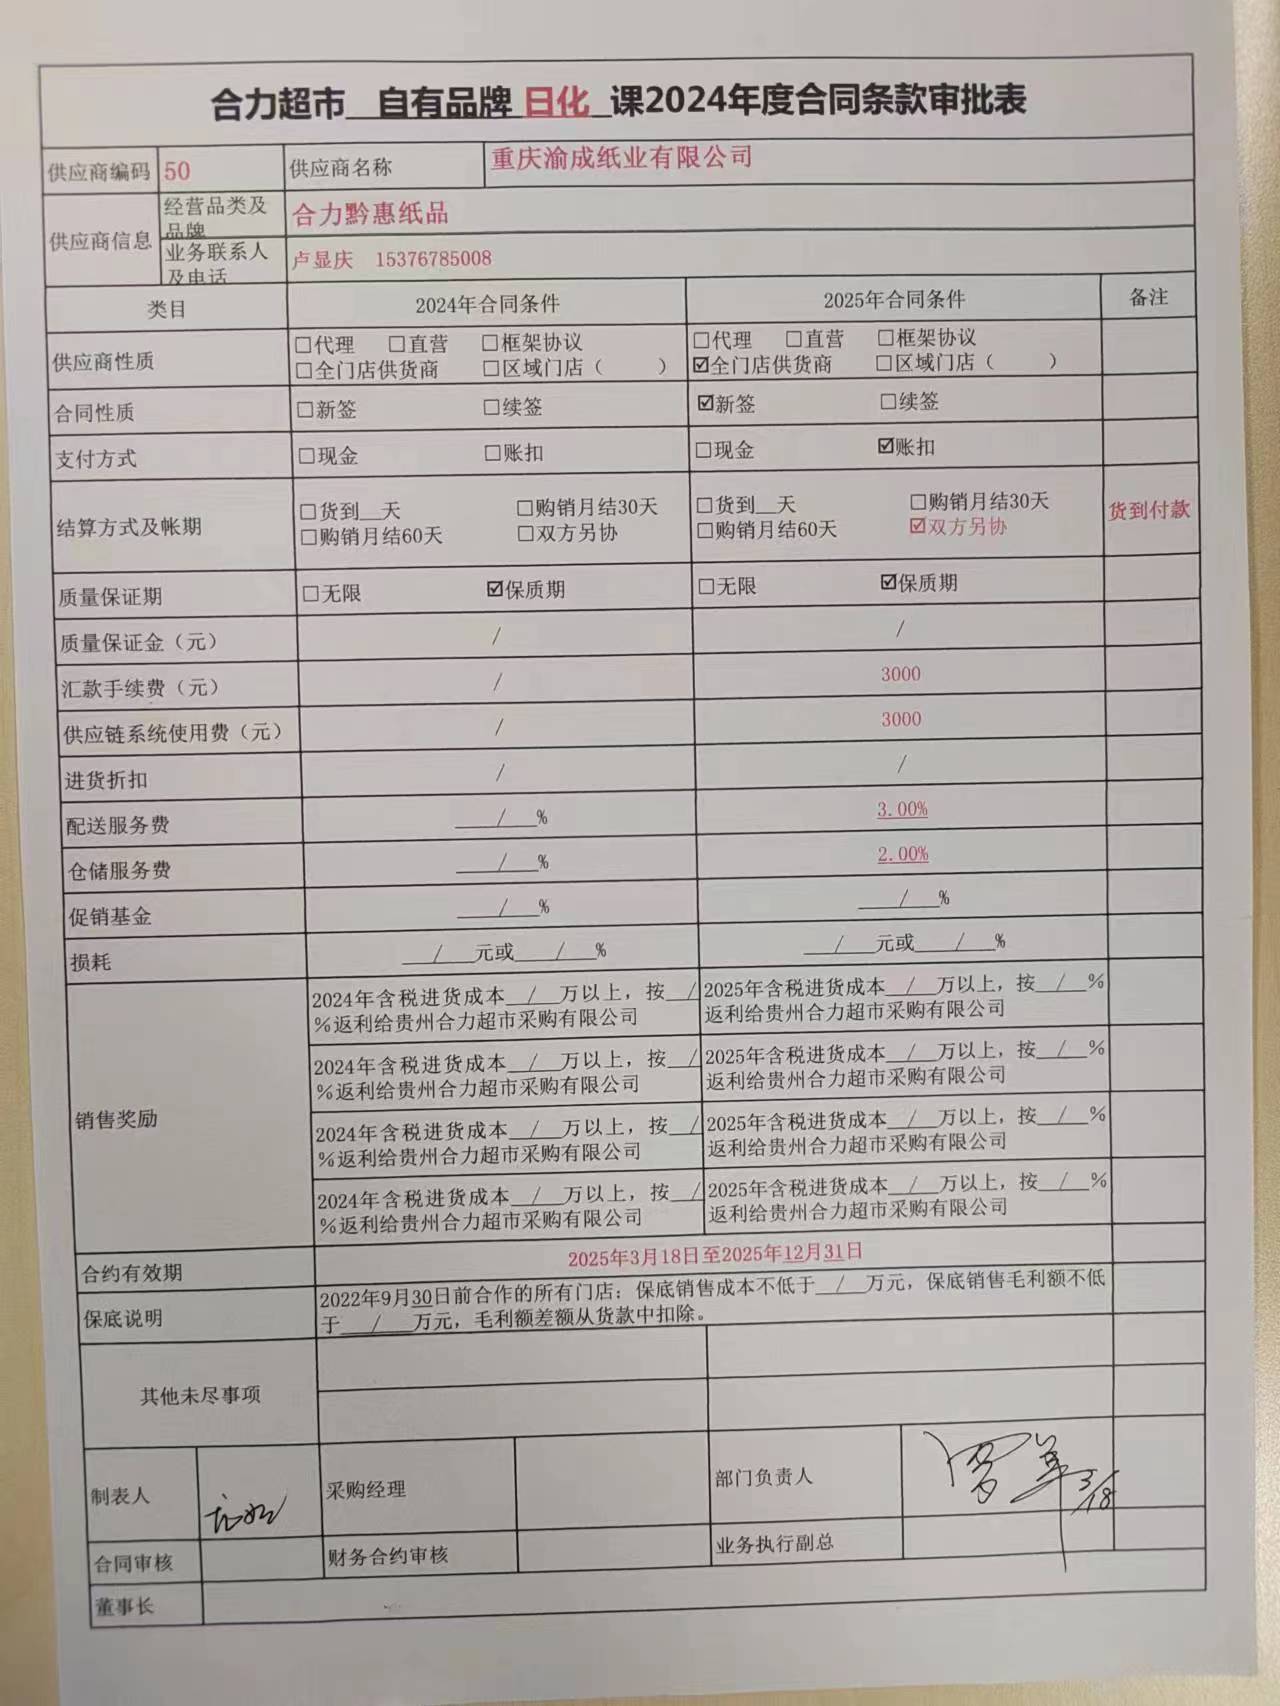 合力超市__自有品牌 日化_课2024年度合同条款审批表
供应商编码 50 供应商名称 重庆渝成纸业有限公司
供应商信息 经营品类及品牌 合力黔惠纸品
业务联系人及电话 卢显庆 15376785008
类目 2024年合同条件 2025年合同条件 备注
供应商性质 □代理 □直营 □框架协议 □代理 □直营 □框架协议
□全门店供货商 □区域门店（ ） ☑全门店供货商 □区域门店（ ）
合同性质 □新签 □续签 ☑新签 □续签
支付方式 □现金 □账扣 □现金 ☑账扣
结算方式及帐期 □货到__天 □购销月结30天 □货到__天 □购销月结30天 货到付款
□购销月结60天 □双方另协 □购销月结60天 ☑双方另协
质量保证期 □无限 ☑保质期 □无限 ☑保质期
质量保证金（元） / /
汇款手续费（元） / 3000
供应链系统使用费（元） / 3000
进货折扣 / /
配送服务费 ___/___% 3.00%
仓储服务费 ___/___% 2.00%
促销基金 ___/___% ___/___%
损耗 ___/___元或___/___% ___/___元或___/___%
销售奖励
2024年含税进货成本__/__万以上，按__/ 2025年含税进货成本__/__万以上，按__/__%
%返利给贵州合力超市采购有限公司 返利给贵州合力超市采购有限公司
2024年含税进货成本__/__万以上，按__/ 2025年含税进货成本__/__万以上，按__/__%
%返利给贵州合力超市采购有限公司 返利给贵州合力超市采购有限公司
2024年含税进货成本__/__万以上，按__/ 2025年含税进货成本__/__万以上，按__/__%
%返利给贵州合力超市采购有限公司 返利给贵州合力超市采购有限公司
2024年含税进货成本__/__万以上，按__/ 2025年含税进货成本__/__万以上，按__/__%
%返利给贵州合力超市采购有限公司 返利给贵州合力超市采购有限公司
合约有效期 2025年3月18日至2025年12月31日
保底说明 2022年9月30日前合作的所有门店；保底销售成本不低于__/__万元，保底销售毛利额不低
于___/___万元，毛利额差额从货款中扣除。
其他未尽事项
制表人 采购经理 部门负责人 3/18
合同审核 财务合约审核 业务执行副总
董事长